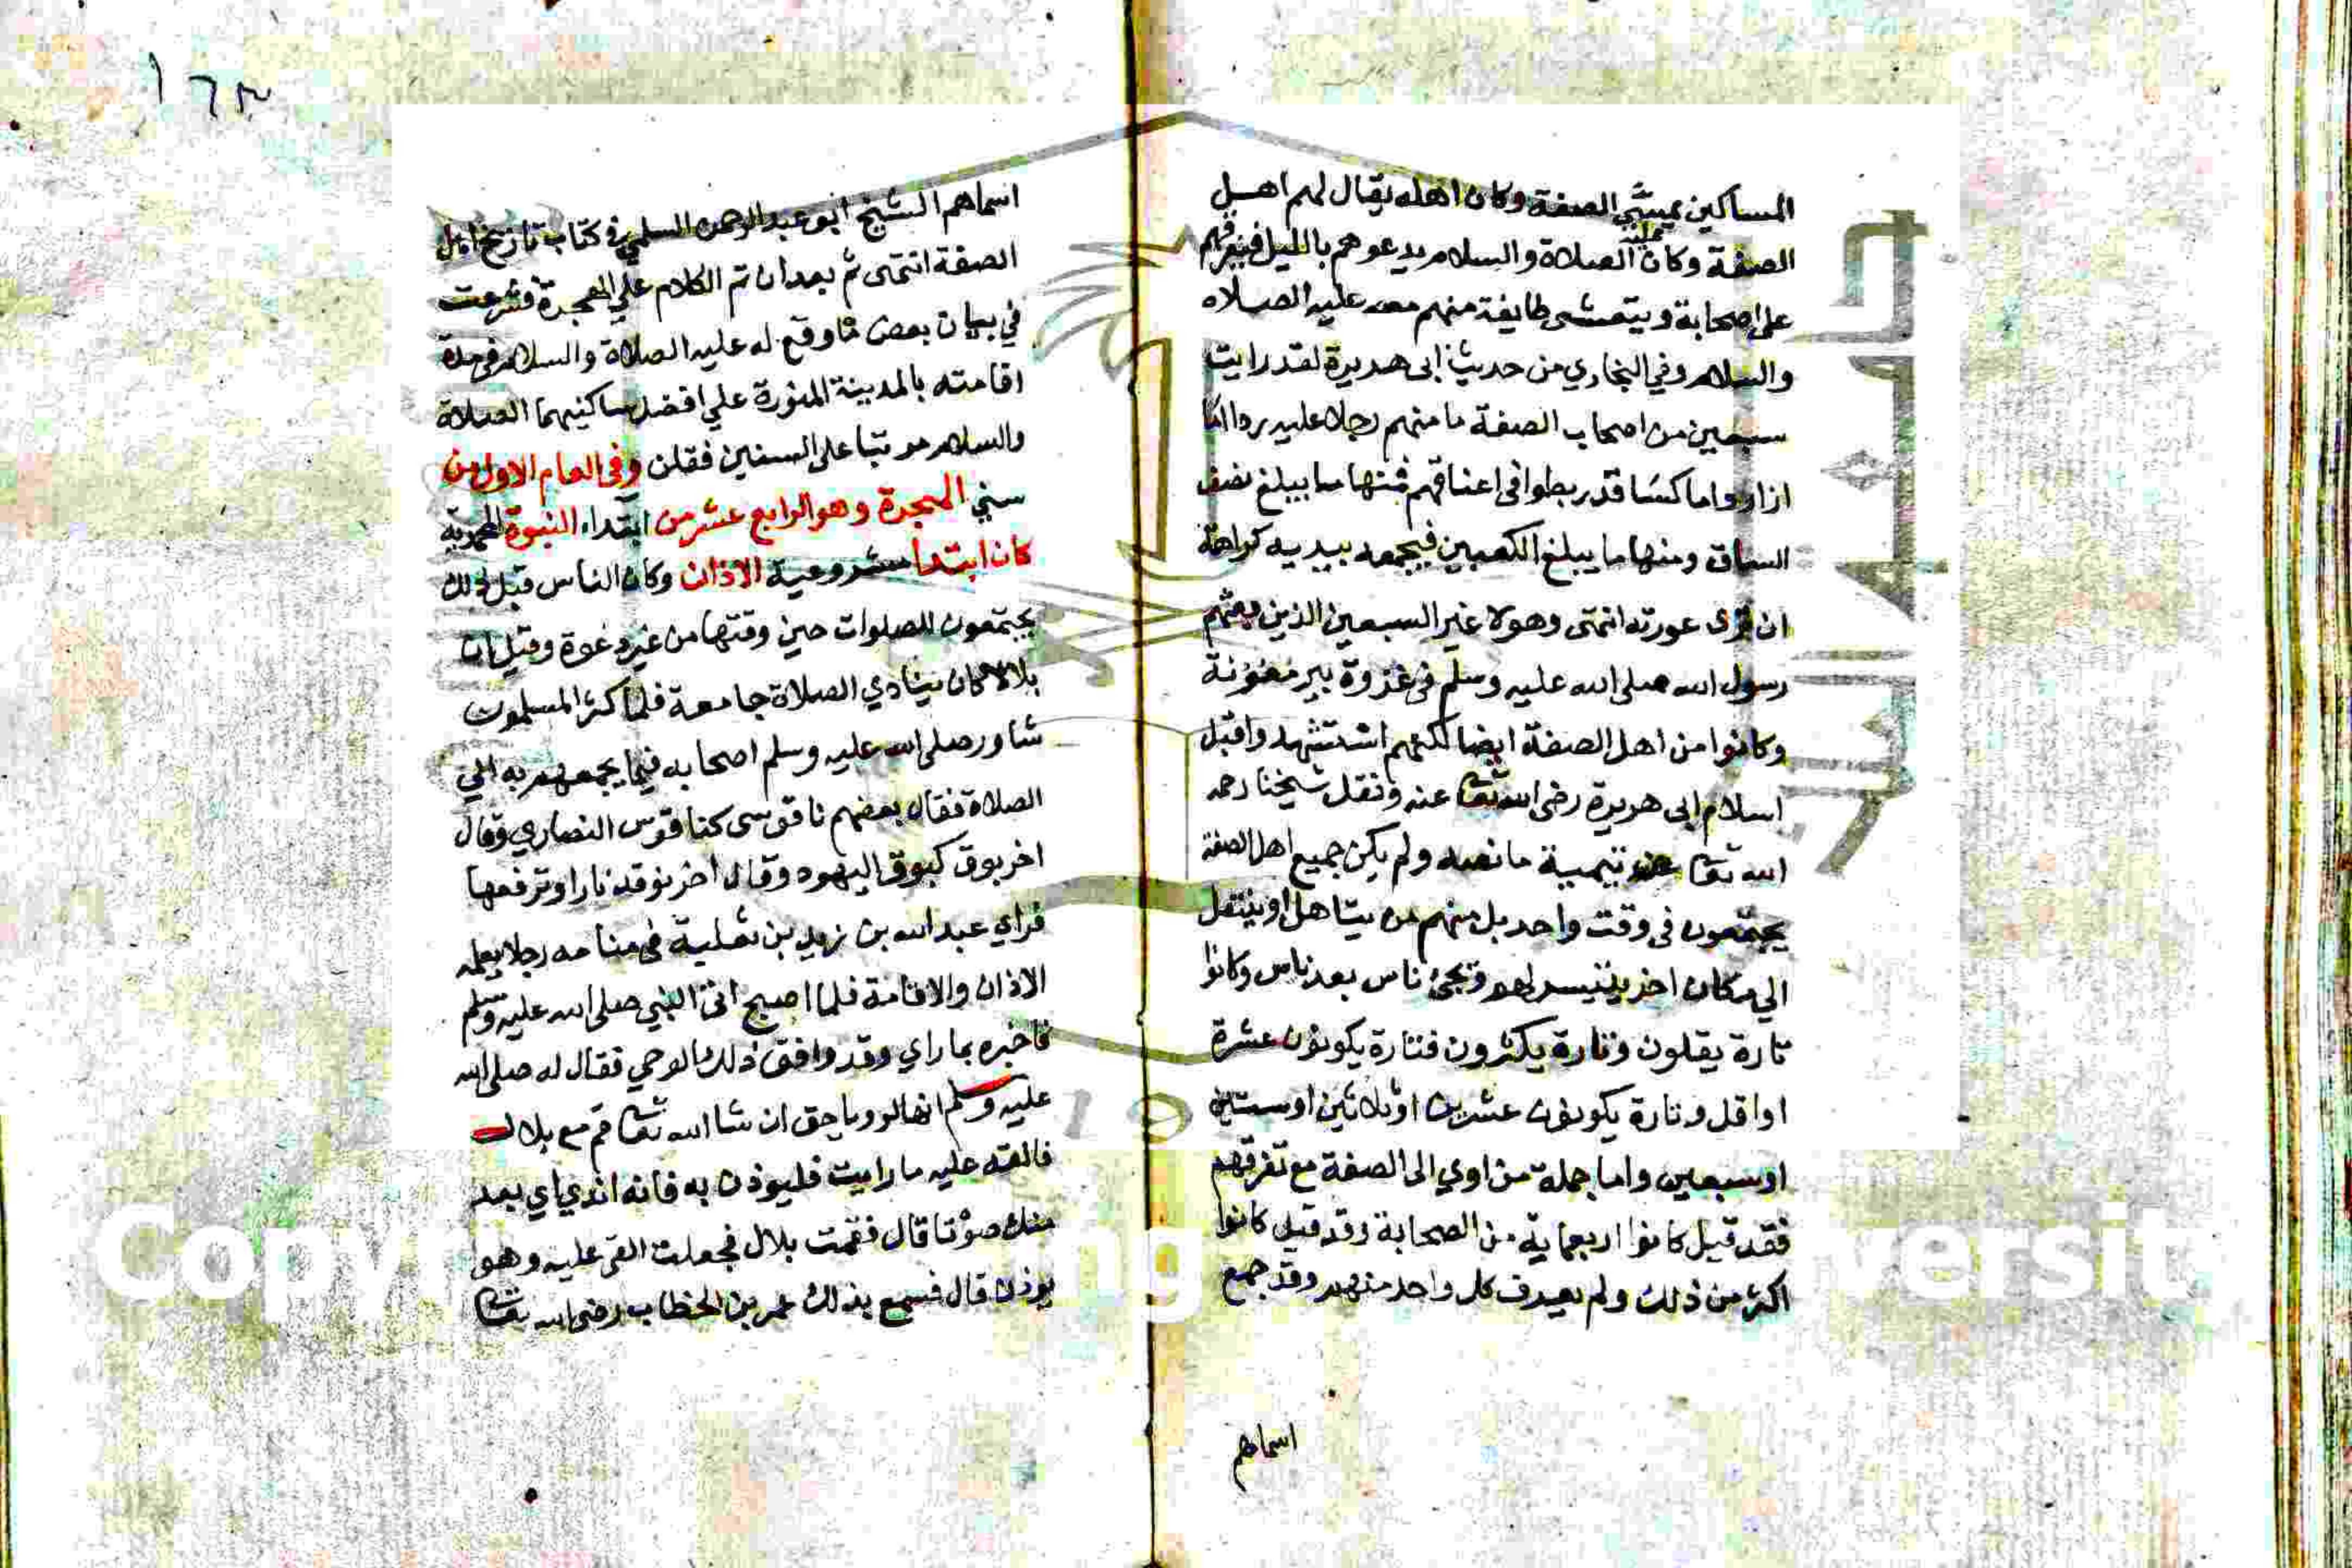 المساكين يسمي الصفة وكان اهله يقال لهم اهل
الصفة وكان عليه الصلاة والسلام يدعوهم بالليل فيفرقهم
على اصحابة ويتعشى طايفة منهم معه عليه الصلاه
والسلام وفي البخاري من حديث ابى هريرة لقد رايت
سبعين من اصحاب الصفة ما منهم رجلا عليه ردا اما
ازار واما كسا قد ربطوا فى اعناقهم فمنها ما يبلغ نصف
الساق ومنها ما يبلغ الكعبين فيجمعه بيديه كراهة
ان ترى عورته انتهى وهولا غير السبعين الذين بعثهم
رسول الله صلى الله عليه وسلم فى غزوة بير معونة
وكانوا من اهل الصفة ايضا لكنهم استشهدوا قبل
اسلام ابى هريرة رضى الله تعا عنه ونقل شيخنا رحمه
الله تعا عن تيمية ما نصه ولم يكن جميع اهل الصفة
يجتمعون فى وقت واحد بل منهم من يتاهل او ينتقل
الي مكان اخر يتيسر لهم ويجئ ناس بعد ناس وكانوا
تارة يقلون وتارة يكثرون فتارة يكونون عشرة
او اقل وتارة يكونون عشرين او ثلاثين او ستين
او سبعين واما جملة من اوي الى الصفة مع تفرقهم
فقد قيل كانوا اربعماية من الصحابة وقد قيل كانوا
اكثر من ذلك ولم يعرف كل واحد منهم وقد جمع
اسماهم
١٦٣
اسماهم الشيخ ابو عبد الرحمن السلمي فى كتاب تاريخ اهل
الصفة انتهى ثم بعد ان تم الكلام علي الهجرة فشرعت
في بيان بعض ما وقع له عليه الصلاة والسلام فى مدة
اقامته بالمدينة المنورة علي افضل ساكنيهما الصلاة
والسلام مرتبا على السنين فقلن وفى العام الاول من
سني الهجرة وهو الرابع عشر من ابتداء النبوة المحمدية
كان ابتدا مشروعية الاذان وكان الناس قبل ذلك
يجتمعون للصلوات حين وقتها من غير دعوة وقيل ان
بلالا كان ينادي الصلاة جامعة فلما كثر المسلمون
شاور صلى الله عليه وسلم اصحابه فيما يجمعهم به الي
الصلاة فقال بعضهم ناقوسى كناقوس النصاري وقال
اخر بوق كبوق اليهود وقال اخر نوقد نارا وترفعها
فراي عبد الله بن زيد بن ثعلبة فى منامه رجلا يعلمه
الاذان والاقامة فلما اصبح اتى النبي صلى الله عليه وسلم
فاخبره بما راي وقد وافق ذلك الوحي فقال له صلى الله
عليه وسلم انها لرويا حق ان شا الله تعا قم مع بلال
فالقه عليه ما رايت فليوذن به فانه اندي اي بعد
منك صوتا قال فقمت بلال فجعلت القى عليه وهو
يوذن قال فسمع بذلك عمر بن الخطاب رضى الله تعا